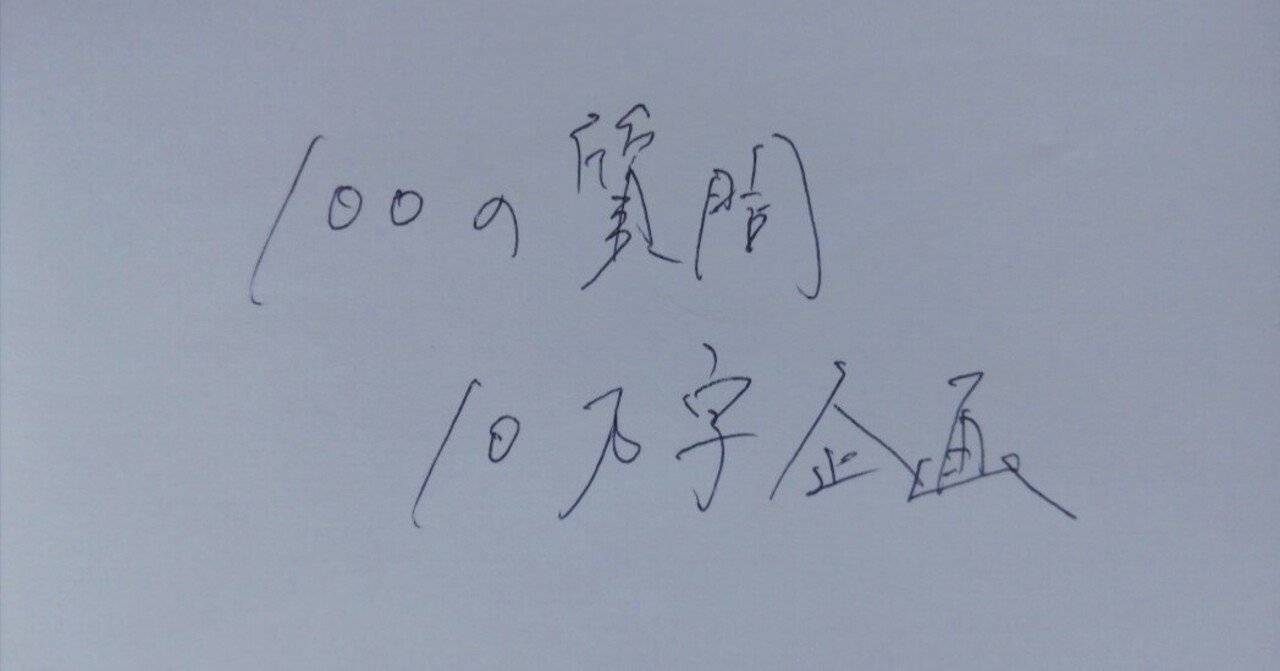 100の質問
10万字企画